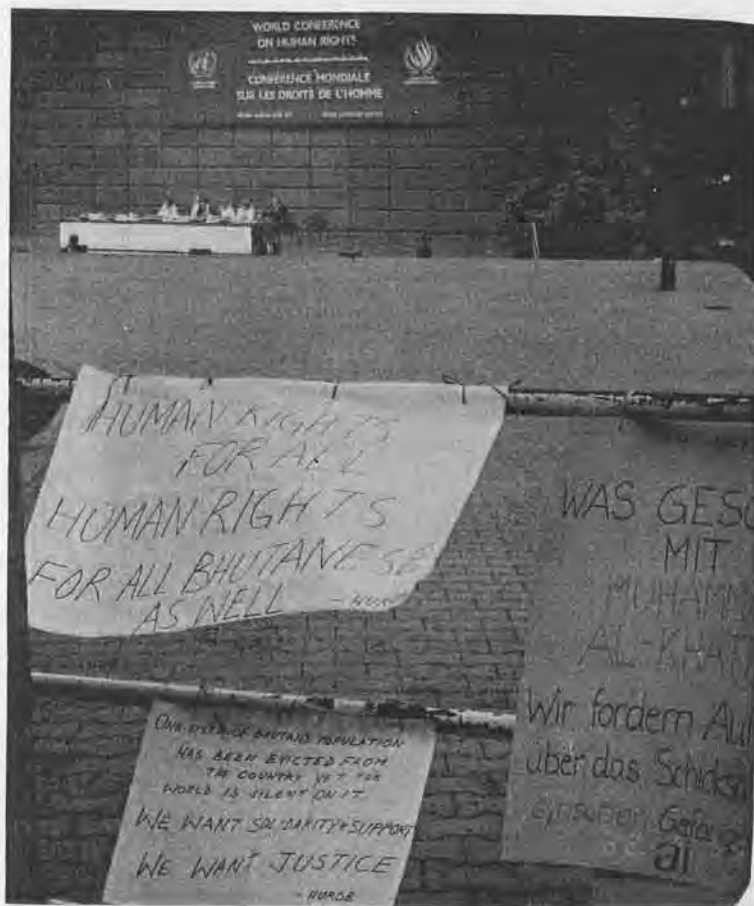 WORLD CONFERENCE
ON HUMAN RIGHTS
CONFÉRENCE MONDIALE
SUR LES DROITS DE L'HOMME
HUMAN RIGHTS
FOR ALL
HUMAN RIGHTS
FOR ALL BHUTANESE
AS WELL
ONE-SIXTH OF BHUTANS POPULATION
HAS BEEN EVICTED FROM
THE COUNTRY YET THE
WORLD IS SILENT ON IT
WE WANT SOLIDARITY & SUPPORT
WE WANT JUSTICE
- HUROB
WAS GESC
MIT
MUHAMM
AL-KHAT
Wir fordern Au
über das Schicks
einsamen Gefang
ai